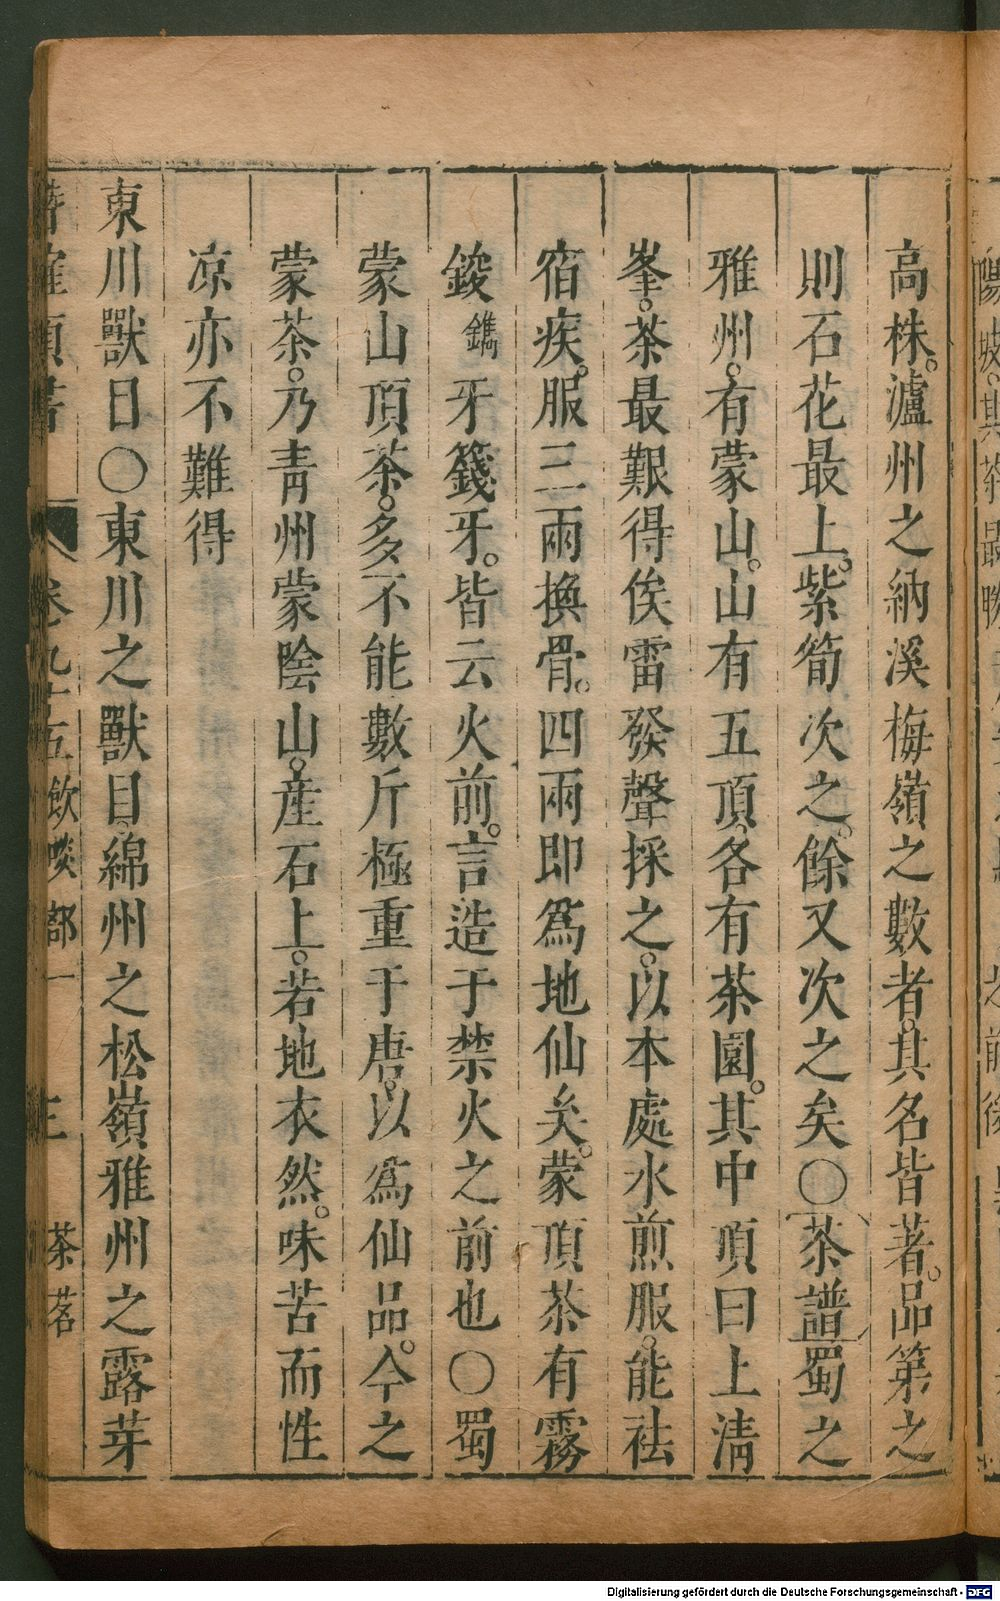 高株瀘州之納溪梅嶺之數者其名皆著品第之
則石花最上紫筍次之餘又次之矣〇茶譜蜀之
雅州有蒙山山有五頂各有茶園其中頂曰上清
峯茶最艱得俟雷發聲採之以本處水煎服能祛
宿疾服三兩換骨四兩即爲地仙矣蒙頂茶有霧
鋑鐫牙籛牙皆云火前言造于禁火之前也〇蜀
蒙山頂茶多不能數斤極重于唐以爲仙品今之
蒙茶乃青州蒙陰山産石上若地衣然味苦而性
凉亦不難得
東川獸目〇東川之獸目綿州之松嶺雅州之露芽
卷九十五飲啖部一 三 茶茗
Digitalisierung gefördert durch die Deutsche Forschungsgemeinschaft - DFG